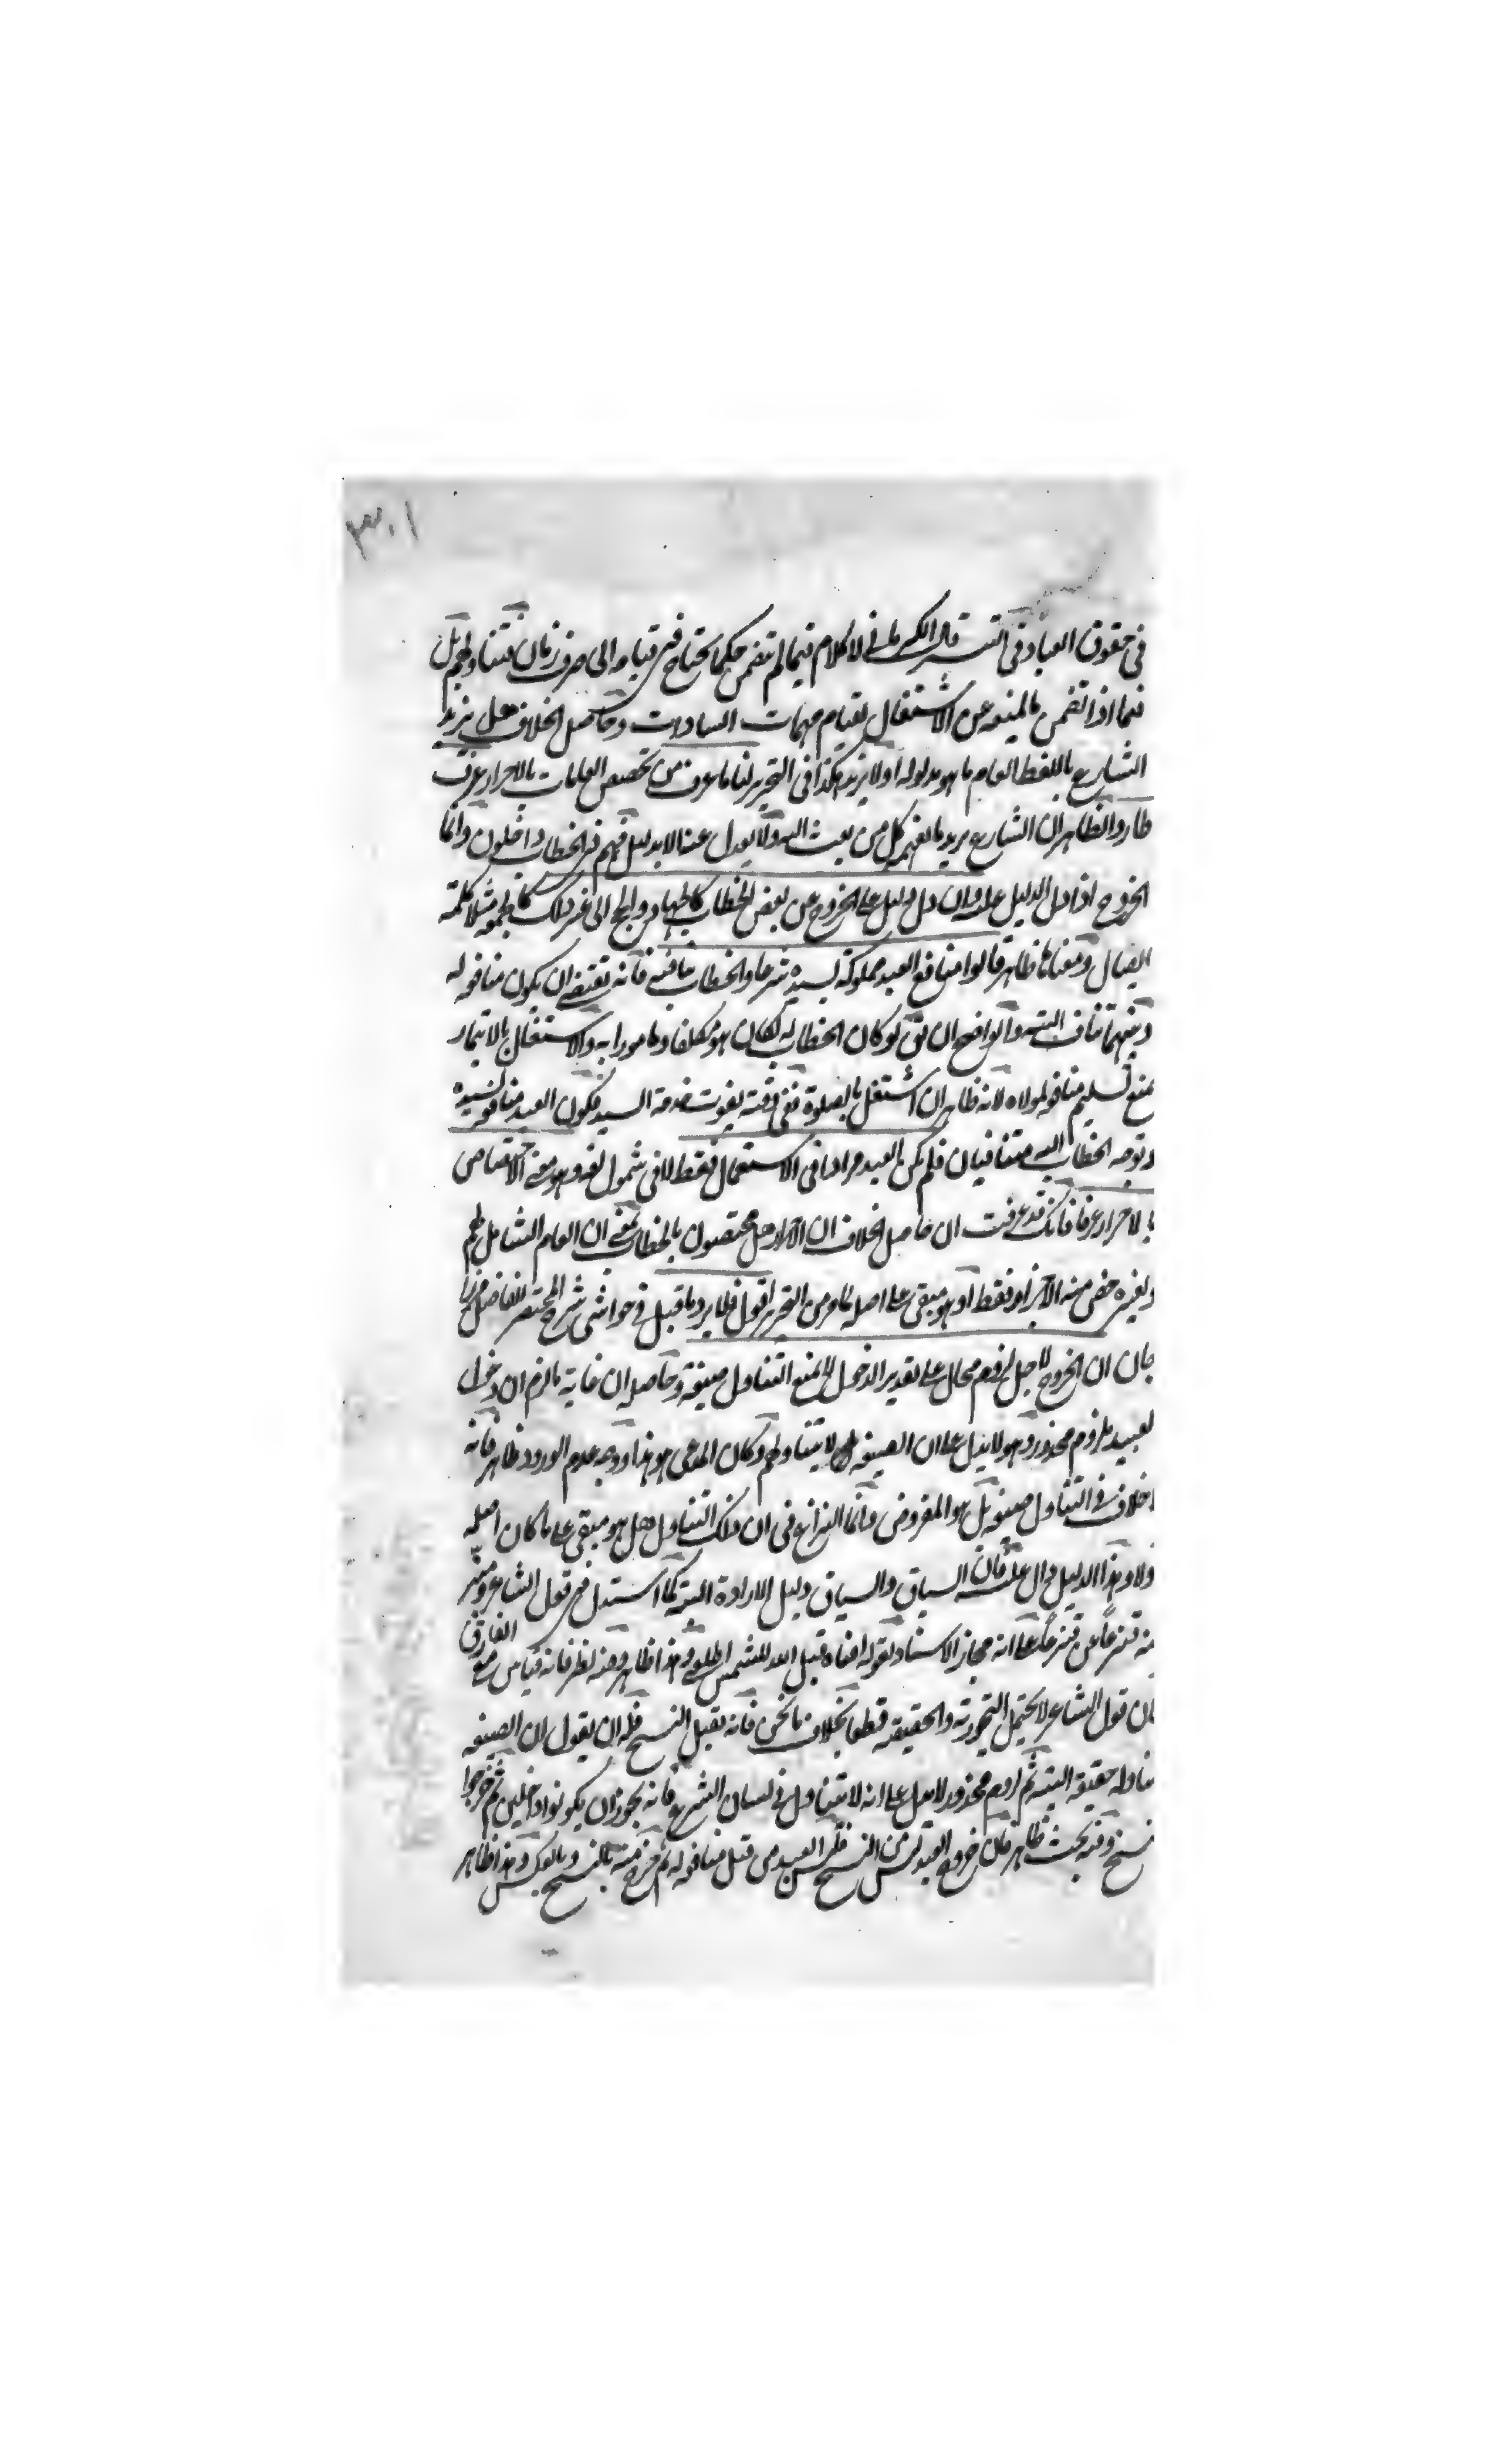 ٣٠١
في حقوق العباد في التيسير قال الكرماني لا كلام فيما لم تتضمن حكما يحتاج في قيامه الى صرف زمان فتتناولهم بل
فيما اذا تضمن ما لمنعه عن الاشتغال لقيام مهمات السادات وحاصل الخلاف هل يريد
الشارع باللفظ العام ما هو مدلوله او لا يريد هكذا في التحرير لنا ما عرف من تخصص العامات بالاحرار عرف
طار والظاهر ان الشارع يريد ما يفهمه كل من بعث اليه ولا يعدل عنه الا بدليل فهم في الخطاب داخلون وانما
الخروج اذا دل الدليل عليه وان دل دليل على الخروج عن بعض الخطاب كالجهاد والحج الى غير ذلك كالجمعة مثلا كلمة
ايصال ومعناها ظاهر قالوا منافع العبد مملوكة لسيده شرعا والخطاب ينافيه فانه يقتضي ان يكون منافعه له
وبينهما تناف البتة والواضح ان يق لو كان الخطاب له لكان هو مكلفا ومامورا به والاشتغال بالايتمار
يمنع تسليم منافعه لمولاه لانه ظاهر ان اشتغل بالصلوة ففي وقته يفوت خدمة السيد فكون العبد منافعه لسيده
وتوجه الخطاب اليه متنافيان فلم يكن العبد مرادا في الاستعمال فقط لا في شمول لغة وهو معنى الاختصاص
بالاحرار عرفا فانك قد عرفت ان حاصل الخلاف ان الاحرار هل مختصون بالخطاب بمعنى ان العام الشامل لهم
ولغيره خص منه الاحرار فقط او هو مبقى على اصله كما مر من التحرير اقول فلا يرد ما قيل في حواشي شرح المختصر للفاضل ميرزا
جان ان الخروج لاجل لزوم محال على تقدير الدخول لا يمنع التناول صيغة وحاصله ان غاية ما لزم ان دخول
لعبيد ملزوم محذور وهو لا يدل على ان الصيغة لا يتناولهم وكان المدعى هو هذا ووجه عدم الورود ظاهر فانه
خلاف في التناول صيغة بل هو المفروض وانما النزاع في ان ذلك التناول هل هو مبقى على ما كان اصله
ولا وهذا الدليل دال عليه فان السباق والسياق دليل الارادة البتة كما استدل في قول الشاعر وميز
عنه قنزعا عن قنزع على انه مجاز الاسناد بقوله افناه قيل الله للشمس اطلعي وهذا ظاهر وفيه نظر فانه قياس مع الفارق
فان قول الشاعر لا يحتمل التجوزية والحقيقة قطعا بخلاف ما نحن فانه يقبل النسخ فله ان يقول ان الصيغة
تناوله حقيقة البتة ثم لزوم محذور لا يدل على انه لا يتناول في لسان الشرع فانه يجوز ان يكونوا داخلين ثم خرجوا
نسخ وفيه بحث ظاهر فان خروج العبد ليس من النسخ فليس العبد من قبل منافعه له ثم خرج منه بالنسخ وبالعكس وهذا ظاهر